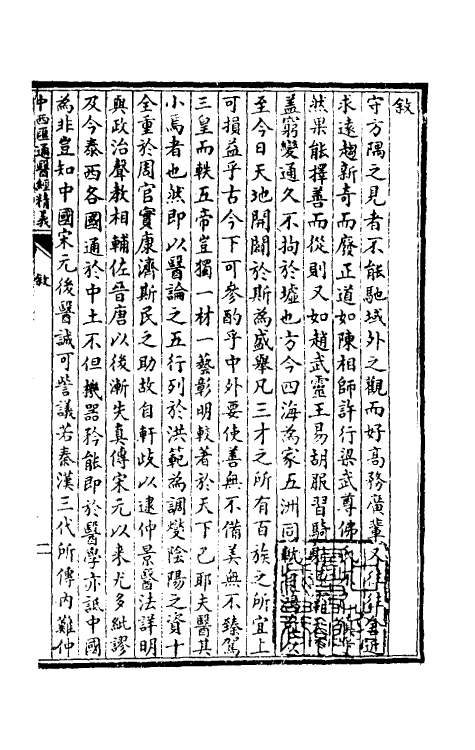 敘
守方隅之見者不能馳域外之觀而好高務廣輩又往往舍近
求遠趨新奇而廢正道如陳相師許行梁武尊佛
然果能擇善而從則又如趙武靈王易胡服習騎
蓋窮變通久不拘於墟也方今四海為家五洲同軌自
至今日天地開闢於斯為盛舉凡三才之所有百族之所宜上
可損益乎古今下可參酌乎中外要使善無不備美無不臻駕
三皇而軼五帝豈獨一材一藝彰明較著於天下已耶夫醫其
小焉者也然即以醫論之五行列於洪範為調燮陰陽之資十
全重於周官實康濟斯民之助故自軒歧以逮仲景醫法詳明
與政治聲教相輔佐晉唐以後漸失真傳宋元以来尤多紕謬
及今泰西各國通於中土不但機器矜能即於醫學亦詆中國
為非豈知中國宋元後醫誠可訾議若秦漢三代所傳內難仲
中西匯通醫經精義
敘